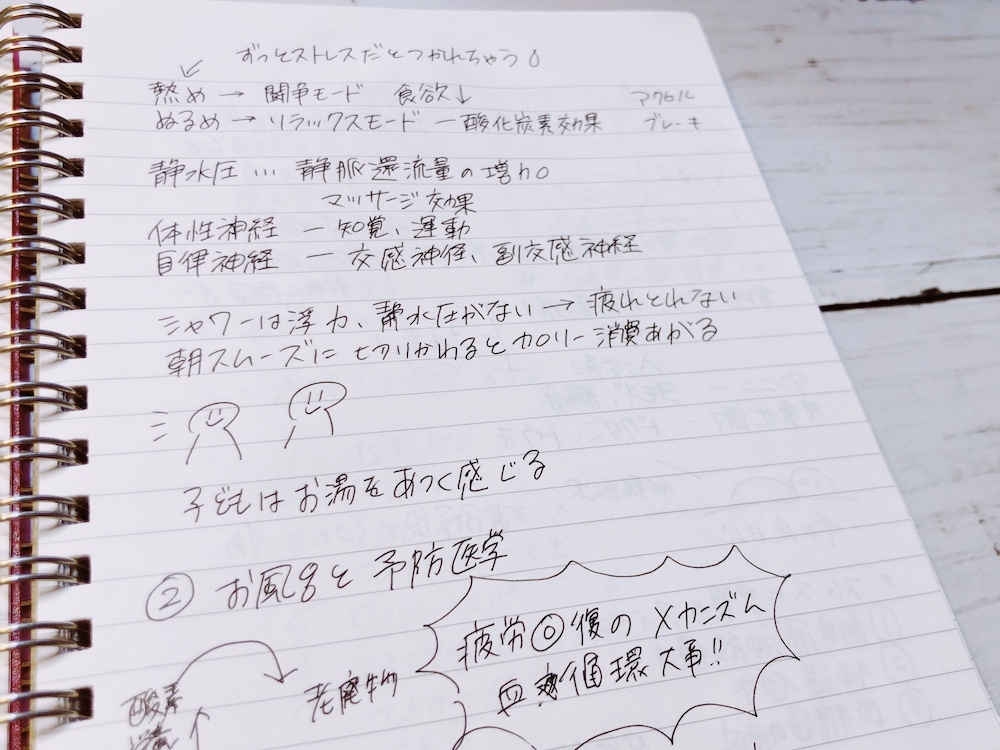 ずっとストレスだとつかれちゃう
熱め → 闘争モード 食欲↓ アクセル
ぬるめ → リラックスモード ー 酸化炭素効果 ブレーキ
静水圧 … 静脈還流量の増加
マッサージ効果
体性神経 ー 知覚、運動
自律神経 ー 交感神経、副交感神経
シャワーは浮力、静水圧がない → 疲れとれない
朝スムーズに切りかわるとカロリー消費あがる
子どもはお湯をあつく感じる
② お風呂と予防医学
疲労回復のメカニズム
血液循環大事!!
酸素 老廃物
栄養